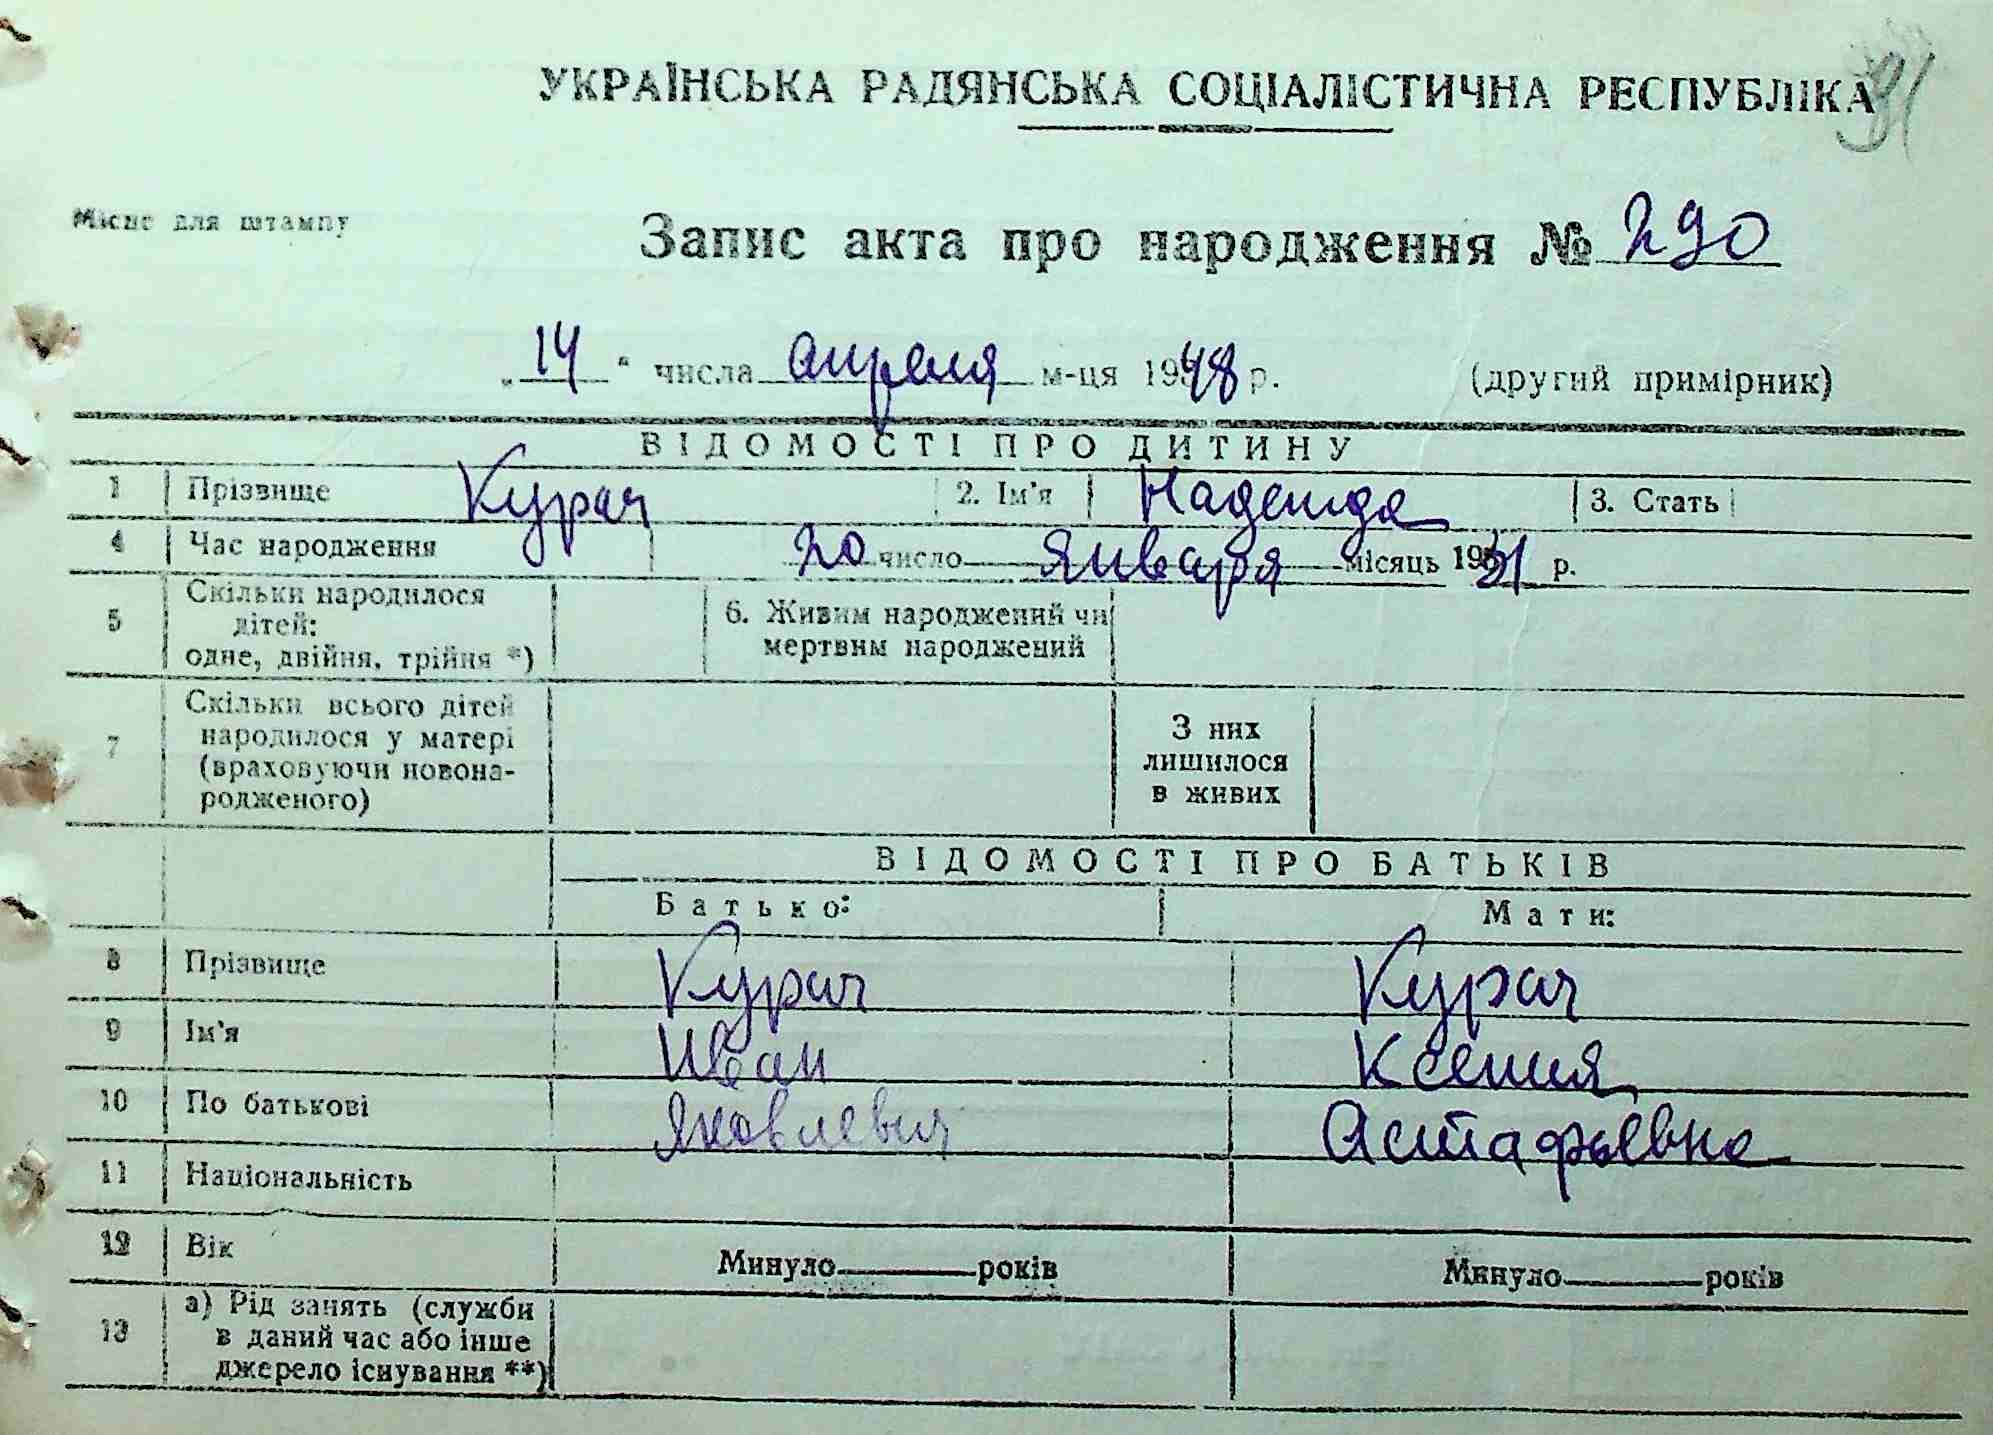 91
УКРАЇНСЬКА РАДЯНСЬКА СОЦІАЛІСТИЧНА РЕСПУБЛІКА
Місце для штампу
Запис акта про народження № 290
„ 14 " числа апреля м-ця 1948 р. (другий примірник)
ВІДОМОСТІ ПРО ДИТИНУ
1 Прізвище Курач 2. Ім'я Надежда 3. Стать
4 Час народження 20 число января місяць 1931 р.
5 Скільки народилося дітей: одне, двійня, трійня *) 6. Живим народжений чи мертвим народжений
7 Скільки всього дітей народилося у матері (враховуючи новонародженого) З них лишилося в живих
ВІДОМОСТІ ПРО БАТЬКІВ
Батько: Мати:
8 Прізвище Курач Курач
9 Ім'я Иван Ксения
10 По батькові Яковлевич Астафьевна
11 Національність
12 Вік Минуло років Минуло років
13 а) Рід занять (служби в даний час або інше джерело існування **)